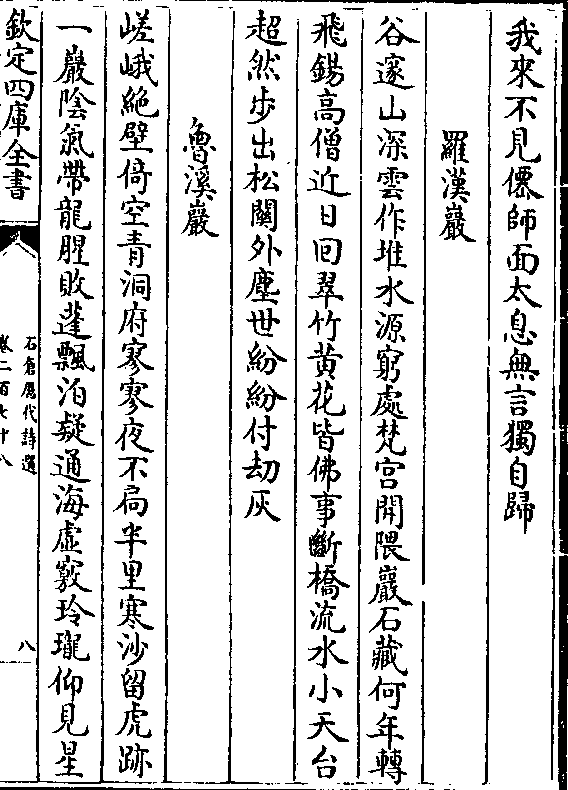 我來不見僊師面太息無言獨自歸
羅漢巖
谷邃山深雲作堆水源窮處梵宫開隈巖石藏何年轉
飛錫高僧近日回翠竹黄花皆佛事斷橋流水小天台
超然步出松關外塵世紛紛付刧灰
魯溪巖
嵯峨絶壁倚空青洞府寥寥夜不扃半里寒沙留虎跡
一巖陰氣帶龍腥敗蓬飄泊疑通海虚竅玲瓏仰見星
欽定四庫全書
石倉歷代詩選
卷二百七十八
八